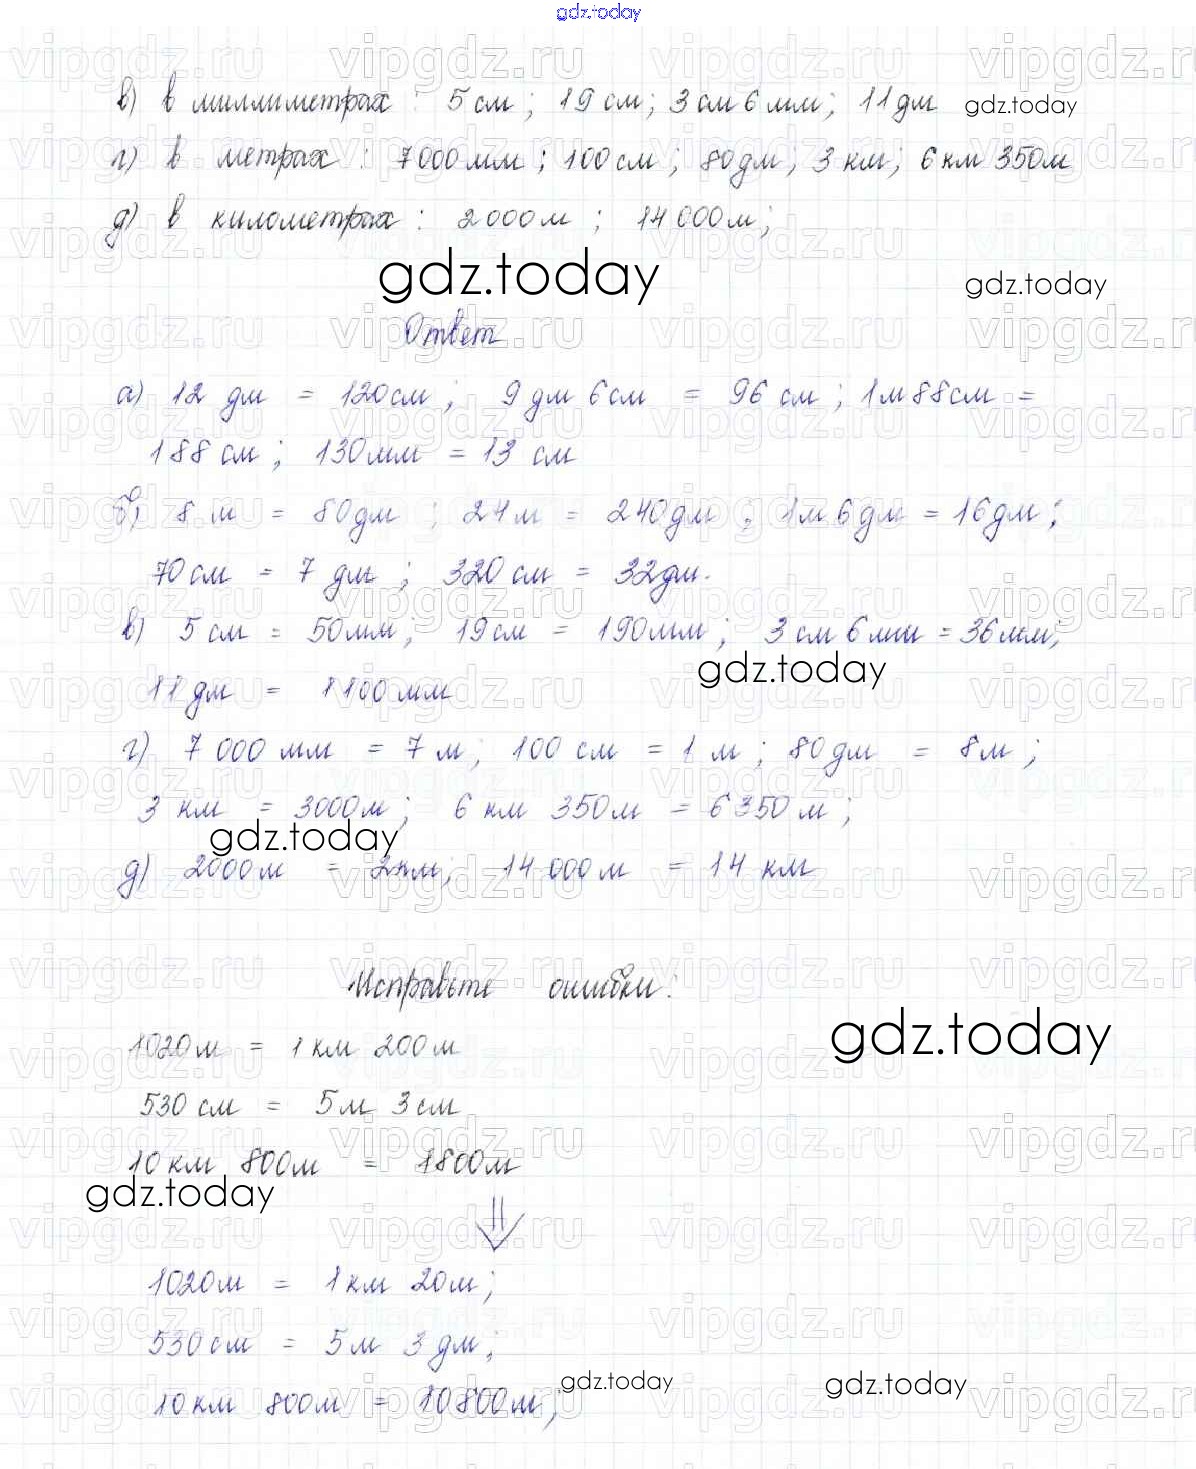 gdz.today
в) в миллиметрах : 5 см ; 19 см ; 3 см 6 мм ; 11 дм gdz.today
г) в метрах : 7000 мм ; 100 см ; 80 дм ; 3 км ; 6 км 350 м
д) в километрах : 2000 м ; 14 000 м ;
gdz.today gdz.today
Ответ
а) 12 дм = 120 см ; 9 дм 6 см = 96 см ; 1 м 88 см =
188 см ; 130 мм = 13 см
б) 8 м = 80 дм ; 24 м = 240 дм ; 1 м 6 дм = 16 дм ;
70 см = 7 дм ; 320 см = 32 дм.
в) 5 см = 50 мм ; 19 см = 190 мм ; 3 см 6 мм = 36 мм ;
gdz.today
11 дм = 1100 мм
г) 7 000 мм = 7 м ; 100 см = 1 м ; 80 дм = 8 м ;
3 км = 3000 м ; 6 км 350 м = 6 350 м ;
gdz.today
д) 2000 м = 2 км ; 14 000 м = 14 км
Исправьте ошибки :
gdz.today
1020 м = 1 км 200 м
530 см = 5 м 3 см
10 км 800 м = 1800 м
gdz.today
1020 м = 1 км 20 м ;
530 см = 5 м 3 дм ;
gdz.today gdz.today
10 км 800 м = 10 800 м ;
vipgdz.ru